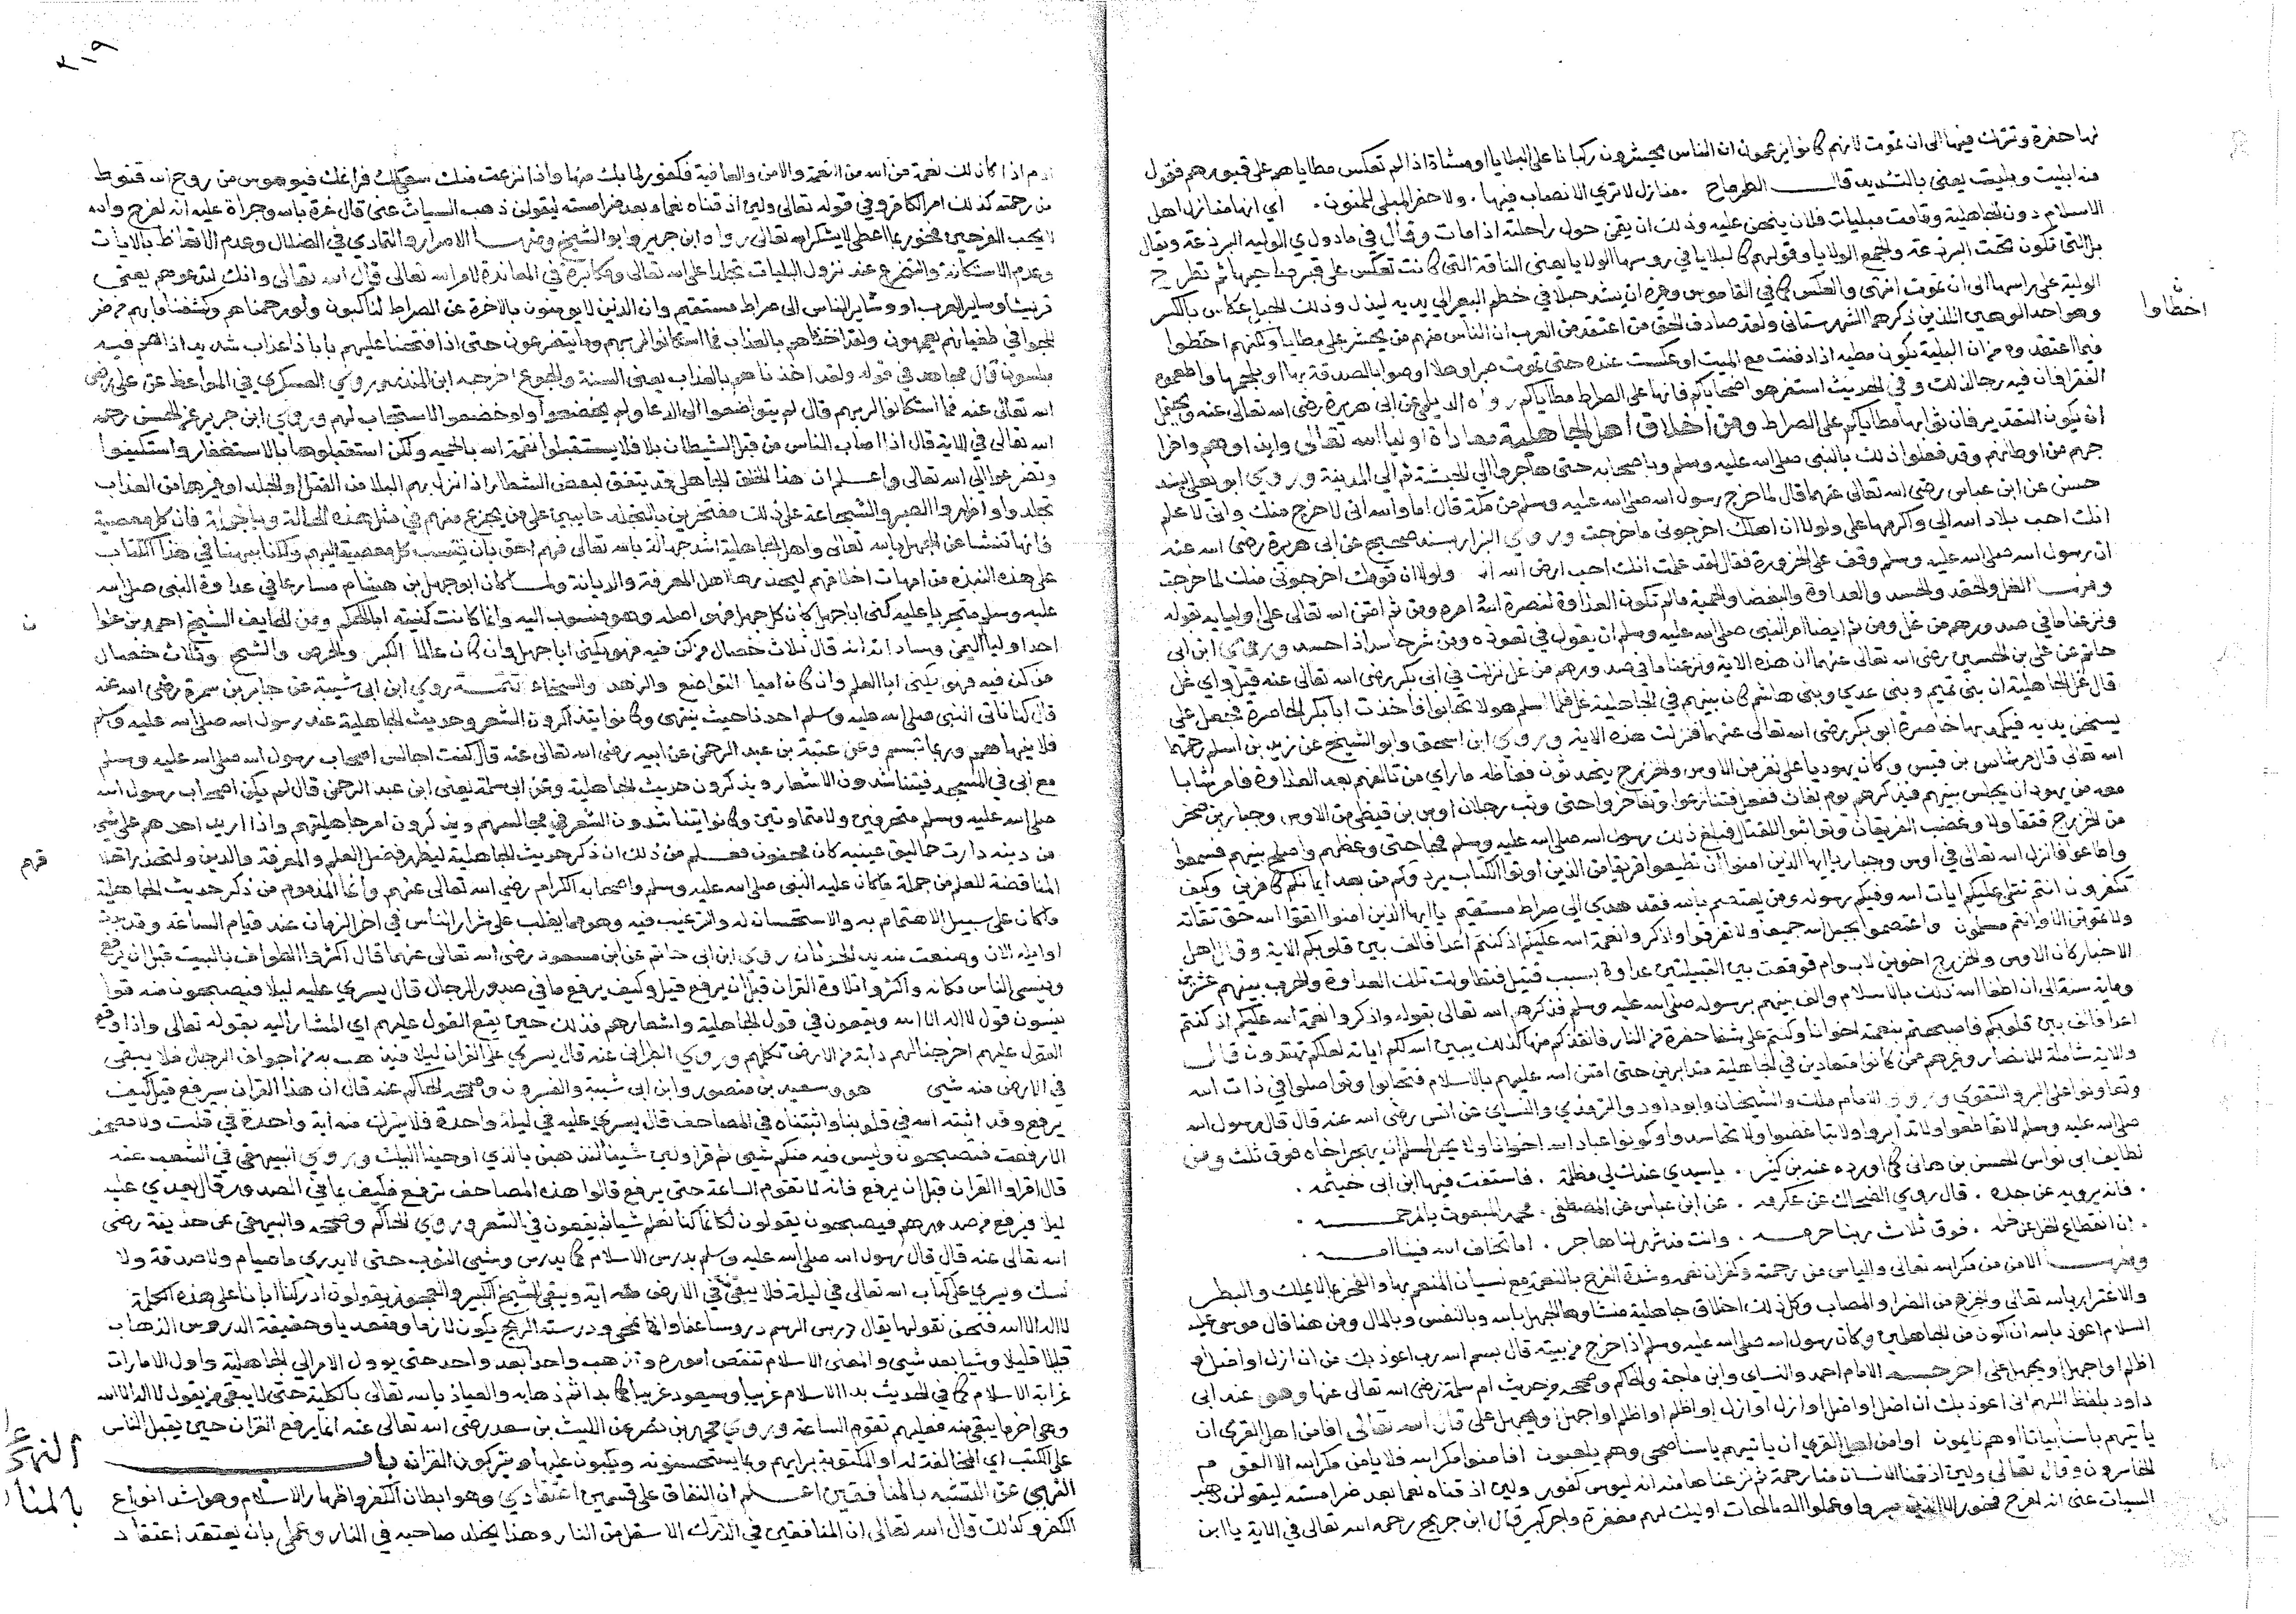 لها حفرة وتترك فيها الى ان تموت لانهم كانوا يزعمون ان الناس يحشرون ركبانا على البلايا ومشاة اذا لم تعكس مطاياهم على قبورهم فتقول
منه ابليت وبليت يعني بالتشديد قال الطرماح . منازل لا ترى الانصاب فيها . ولا حفر المبلى للمنون . اي انها منازل اهل
الاسلام دون الجاهلية وقامت مبليات فلان ينحن عليه وذلك ان يقمن حول راحلته اذا مات وقال في مادة ولي الولية البرذعة ويقال
بل التي تكون تحت البرذعة والجمع الولايا وقولهم كالبلايا في روسها الولايا يعني الناقة التي كانت تعكس على قبر صاحبها ثم تطرح
الولية على راسها الى ان تموت انتهى والعكس كما في القاموس وغيره ان يشد حبلا في خطم البعير الى يديه ليذل وذلك الحبل عكاس بالكسر
وهو احد الوهمين اللذين ذكرهما الشهرستاني ولقد صادف الحق من اعتقد من العرب ان الناس منهم من يحشر على مطايا ولكنهم اخطوا
اخطّاوا
فيما اعتقدوه من ان البلية تكون مطيه اذا دفنت مع الميت او عكست عنده حتى تموت صبرا وهلا اوصوا بالصدقة بها او بلحمها واطعموه
الفقرا فان فيه رجا لذلك وفي الحديث استفرهوا ضحاياكم فانها على الصراط مطاياكم رواه الديلمي عن ابي هريرة رضي الله تعالى عنه ويحتمل
ان يكون التقدير فان ثوابها مطاياكم على الصراط ومن اخلاق اهل الجاهلية معاداة اوليا الله تعالى وايذاوهم واخرا
جهم من اوطانهم وقد فعلوا ذلك بالنبي صلى الله عليه وسلم وباصحابه حتى هاجروا الى الحبشة ثم الى المدينة وروى ابو يعلى بسند
حسن عن ابن عباس رضي الله تعالى عنهما قال لما خرج رسول الله صلى الله عليه وسلم من مكة قال اما والله اني لاخرج منك واني لاعلم
انك احب بلاد الله الي واكرمها على ولولا ان اهلك اخرجوني ما خرجت وروى البزار بسند صحيح عن ابي هريرة رضي الله عنه
ان رسول الله صلى الله عليه وسلم وقف على الحزورة فقال لقد علمت انك احب ارض الله ولولا ان قومك اخرجوني منك لما خرجت
ومنها الغل والحقد والحسد والعداوة والبغضا والحمية مالم تكون العداوة لنصرة الله امره ومن ثم امتن الله تعالى على اوليايه بقوله
ونزعنا ما في صدورهم من غل ومن ثم ايضا امر النبي صلى الله عليه وسلم ان يقول في تعوذه ومن شر حاسد اذا حسد وروى ابن ابي
حاتم عن علي بن الحسين رضي الله تعالى عنهما ان هذه الاية ونزعنا ما في صدورهم من غل نزلت في ابي بكر رضي الله تعالى عنه قيل واي غل
قال غل الجاهلية ان بني تميم وبني عدي وبني هاشم كان بينهم في الجاهلية غل فلما اسلم هولا تحابوا فاخذت ابا بكر الخاصرة فجعل علي
يسخن يديه فيكمد بها خاصرة ابو بكر رضي الله تعالى عنهما فنزلت هذه الاية وروى ابن اسحق وابو الشيخ عن زيد بن اسلم رحمهما
الله تعالى قال مر شاس بن قيس وكان يهوديا على نفر من الاوس والخزرج يتحدثون فغاظه ما راى من تالفهم بعد العداوة فامر شابا
معه من يهود ان يجلس بينهم فيذكرهم يوم بعاث ففعل فتنازعوا وتفاخروا حتى وثب رجلان اوس بن قيظى من الاوس وجبار بن صخر
من الخزرج فتقاولا وغضب الفريقان وتواثبوا للقتال فبلغ ذلك رسول الله صلى الله عليه وسلم فجا حتى وعظهم واصلح بينهم فسمعوا
واطاعوا فانزل الله تعالى في اوس وجبار يا ايها الذين امنوا ان تطيعوا فريقا من الذين اوتوا الكتاب يردوكم من بعد ايمانكم كافرين وكيف
تكفرون وانتم تتلى عليكم ايات الله وفيكم رسوله ومن يعتصم بالله فقد هدي الى صراط مستقيم يا ايها الذين امنوا اتقوا الله حق تقاته
ولا تموتن الا وانتم مسلمون واعتصموا بحبل الله جميعا ولا تفرقوا واذكروا نعمة الله عليكم اذ كنتم اعدا فالف بين قلوبكم الاية وقال اهل
الاخبار كان الاوس والخزرج اخوين لاب وام فوقعت بين القبيلتين عداوة بسبب قتيل فتطاولت تلك العداوة والحرب بينهم عشرين
وماية سنة الى ان اطفا الله ذلك بالاسلام والف بينهم برسوله صلى الله عليه وسلم فذكرهم الله تعالى بقوله واذكروا نعمة الله عليكم اذ كنتم
اعدا فالف بين قلوبكم فاصبحتم بنعمته اخوانا وكنتم على شفا حفرة من النار فانقذكم منها كذلك يبين الله لكم اياته لعلكم تهتدون قال
والاية شاملة للانصار وغيرهم ممن كانوا متعادين في الجاهلية متدابرين حتى امتن الله عليهم بالاسلام فتحابوا وتواصلوا في ذات الله
وتعاونوا على البر والتقوى وروى الامام مالك والشيخان وابو داود والترمذي والنساي عن انس رضي الله عنه قال قال رسول الله
صلى الله عليه وسلم لا تقاطعوا ولا تدابروا ولا تباغضوا ولا تحاسدوا وكونوا عباد الله اخوانا ولا يحل لمسلم ان يهجر اخاه فوق ثلث ومن
لطايف ابي نواس الحسن بن هاني كما اورده عنه بن كثير . يا سيدي عندك لي مظلمة . فاستفت فيها ابن ابي خيثمه .
. فانه يرويه عن جده . قال روى الضحاك عن عكرمه . عن ابن عباس عن المصطفى . محمد المبعوث بالمرحمه .
. ان انقطاع الخل عن خله . فوق ثلاث ربنا حرمه . وانت قد شهر لنا هاجر . اما تخاف الله فينا امه .
ومنها الامن من مكر الله تعالى والياس من رحمته وكفران نعمه وشدة الفرح بالنعمة مع نسيان المنعم بها والفخر بما لا يملك والبطر
والاغترار بالله تعالى والجزع من الضرا والمصاب وكل ذلك اخلاق جاهلية منشاوها الجهل بالله وبالنفس وبالمال ومن هنا قال موسى عليه
السلام اعوذ بالله ان اكون من الجاهلين وكان رسول الله صلى الله عليه وسلم اذا خرج من بيته قال بسم الله رب اعوذ بك من ان ازل او اضل او
اظلم او اجهل او يجهل على اخرجه الامام احمد والنساي وابن ماجة والحاكم وصححه من حديث ام سلمة رضي الله تعالى عنها وهو عند ابي
داود بلفظ اللهم اني اعوذ بك ان اضل او اضل او ازل او ازل او اظلم او اظلم او اجهل او يجهل على قال الله تعالى افامن اهل القرى ان
ياتيهم باسنا بياتا وهم نايمون اوامن اهل القرى ان ياتيهم باسنا ضحى وهم يلعبون افامنوا مكر الله فلا يامن مكر الله الا القوم
الخاسرون وقال تعالى ولين اذقنا الانسان منا رحمة ثم نزعناها منه انه ليوس كفور ولين اذقناه نعما بعد ضرا مسته ليقولن ذهب
السيات عني انه لفرح فخور الا الذين صبروا وعملوا الصالحات اوليك لهم مغفرة واجر كبير قال ابن جريج رحمه الله تعالى في الاية يا ابن
٢١٩
ادم اذا كان لك نعمة من الله من النعمة والامن والعافية فكفور لما بك منها واذا نزعت منك فيوس من روح الله قنوط
من رحمته كذلك امر الكافر وفي قوله تعالى ولين اذقناه نعما بعد ضرا مسته ليقولن ذهب السيات عني قال غرة بالله وجراة عليه انه لفرح والله
لا يحب الفرحين فخور بما اعطي لا يشكر الله تعالى رواه ابن جرير وابو الشيخ ومنها الاصرار والتمادي في الضلال وعدم الاتعاظ بالايات
وعدم الاستكانة والتضرع عند نزول البليات تجلدا على الله تعالى ومكابرة في المعاندة لامر الله تعالى قال الله تعالى وانك لتدعوهم يعني
قريشا وساير العرب او وساير الناس الى صراط مستقيم وان الذين لا يومنون بالاخرة عن الصراط لناكبون ولو رحمناهم وكشفنا ما بهم من ضر
للجوا في طغيانهم يعمهون ولقد اخذناهم بالعذاب فما استكانوا لربهم وما يتضرعون حتى اذا فتحنا عليهم بابا ذا عذاب شديد اذا هم فيه
مبلسون قال مجاهد في قوله ولقد اخذناهم بالعذاب يعني السنة والجوع اخرجه ابن المنذر وروى العسكري في المواعظ عن علي رضي
الله تعالى عنه فما استكانوا لربهم قال لم يتواضعوا الى الدعا ولم يخضعوا ولو خضعوا لاستجاب لهم وروى ابن جرير عن الحسن رحمه
الله تعالى في الاية قال اذا اصاب الناس من قبل الشيطان بلا فلا يستقبلوا نقمة الله بالحميه ولكن استقبلوها بالاستغفار واستكينوا
وتضرعوا الى الله تعالى واعلم ان هذا الخلق الجاهلي قد يتفق لبعض الشطار اذا نزل بهم البلا من القتل او الجلد او غيرها من العذاب
تجلدوا واظهروا الصبر والشجاعة على ذلك مفتخرين بالتجلد عايبين على من يجزع منهم في مثل هذه الحالة وبالجملة فان كل معصية
فانها تنشا عن الجهل بالله تعالى واهل الجاهلية اشد جهالة بالله تعالى فهم احق بان ينسب كل معصية اليهم ولكنا نبهنا في هذا الكتاب
على هذه النبذة من امهات اخلاقهم ليحذرها اهل المعرفة والديانة ولما كان ابو جهل بن هشام مسارعا في عداوة النبي صلى الله
عليه وسلم متجريا عليه كنى ابا جهل كان كل جهل فهو اصله وهو منسوب اليه وانما كانت كنيته ابا الحكم ومن لطايف الشيخ احمد بن علوا
ن
احد اوليا اليمن وساداته انه قال ثلاث خصال من كن فيه فهو يكنى ابا جهل وان كان عالما الكبر والحرص والشح وثلاث خصال
من كن فيه فهو يكنى ابا العلم وان كان اميا التواضع والزهد والسخاء تتمة روى ابن ابي شيبة عن جابر بن سمرة رضي الله عنه
قال كنا ناتي النبي صلى الله عليه وسلم احدنا حيث ينتهى وكانوا يتذاكرون الشعر وحديث الجاهلية عند رسول الله صلى الله عليه وسلم
فلا ينهاهم وربما تبسم وعن عتبة بن عبد الرحمن عن ابيه رضي الله تعالى عنه قال كنت اجالس اصحاب رسول الله صلى الله عليه وسلم
مع ابي في المسجد فيتناشدون الاشعار ويذكرون حديث الجاهلية وعن ابي سلمة يعني ابن عبد الرحمن قال لم يكن اصحاب رسول الله
صلى الله عليه وسلم متحرفين ولا متماوتين وكانوا يتناشدون الشعر في مجالسهم ويذكرون امر جاهليتهم واذا اريد احدهم على شي
من دينه دارت حماليق عينيه كانه مجنون فعلم من ذلك ان ذكر حديث الجاهلية ليظهر فضل العلم والمعرفة والدين وليحذر اخلا
قهم
المناقضة للعلم من جملة ما كان عليه النبي صلى الله عليه وسلم واصحابه الكرام رضي الله تعالى عنهم وانما المذموم من ذكر حديث الجاهلية
ما كان على سبيل الاهتمام به والاستحسان له والترغيب فيه وهو مما يغلب على شرار الناس في اخر الزمان عند قيام الساعة وقد
اوايله الان روى ابن ابي حاتم عن ابن مسعود رضي الله تعالى عنهما قال اكثروا الطواف بالبيت قبل ان يرفع
وينسى الناس مكانه واكثروا تلاوة القران قبل ان يرفع قيل وكيف يرفع ما في صدور الرجال قال يسرى عليه ليلا فيصبحون منه قوا
ينسون قول لا اله الا الله ويقعون في قول الجاهلية واشعارهم فذلك حين يقع القول عليهم اي المشار اليه بقوله تعالى واذا وقع
القول عليهم اخرجنا لهم دابة من الارض تكلمهم وروى الطبراني عنه قال يسرى على القران ليلا فيذهب به من اجواف الرجال فلا يبقى
في الارض منه شي هو وسعيد بن منصور وابن ابي شيبة والمفسرون وصححه الحاكم عنه قال ان هذا القران سيرفع قيل كيف
يرفع وقد اثبته الله في قلوبنا واثبتناه في المصاحف قال يسرى عليه في ليلة واحدة فلا يترك منه اية واحدة في قلب ولا مصحف
الا رفعت فتصبحون وليس فيه منكم شي ثم قرا ولين شينا لنذهبن بالذي اوحينا اليك وروى البيهقي في الشعب عنه
قال اقروا القران قبل ان يرفع فانه لا تقوم الساعة حتى يرفع قالوا هذه المصاحف ترفع فكيف بما في الصدور قال يعدى عليه
ليلا فيرفع من صدورهم فيصبحون يقولون لكانما كنا نعلم شيا ثم يقعون في الشعر وروى الحاكم وصححه والبيهقي عن حذيفة رضي
الله تعالى عنه قال قال رسول الله صلى الله عليه وسلم يدرس الاسلام كما يدرس وشي الثوب حتى لا يدرى ما صيام ولا صدقة ولا
نسك ويسرى على كتاب الله تعالى في ليلة فلا يبقى في الارض منه اية ويبقى الشيخ الكبير والعجوز يقولون ادركنا ابانا على هذه الكلمة
لا اله الا الله فنحن نقولها يقال درس الرسم دروسا عفا وانمحى ودرسته الريح يكون لازما ومتعديا وحقيقة الدروس الذهاب
قليلا قليلا وشيا بعد شي والمعنى الاسلام تنقص اموره وتذهب واحدا بعد واحد حتى يوول الامر الى الجاهلية واول الامارات
غرابة الاسلام كما في الحديث بدا الاسلام غريبا وسيعود غريبا كما بدا ثم ذهابه والعياذ بالله تعالى بالكلية حتى لا يبقى من يقول لا اله الا الله
وهي اخر ما يبقى منه فعليهم تقوم الساعة وروى محمد بن نصر عن الليث بن سعد رضي الله تعالى عنه انما يرفع القران حين يقبل الناس
على الكتب اي المخالفة له او المكتوبة برايهم وبما يستحسنونه ويكبون عليها ويتركون القران باب
النهي عن التشبه بالمنافقين اعلم ان النفاق على قسمين اعتقادي وهو ابطان الكفر واظهار الاسلام وهو اشد انواع
الكفر وكذلك قال الله تعالى ان المنافقين في الدرك الاسفل من النار وهذا يخلد صاحبه في النار وعملي بان يعتقد اعتقاد